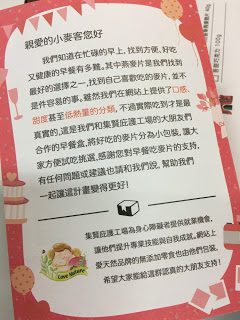 親愛的小麥客您好
我們知道在忙碌的早上，找到方便、好吃
又健康的早餐有多難。其中燕麥片是我們找到
最好的選擇之一，找到自己喜歡吃的麥片，並不
是件容易的事。雖然我們在網站上提供了口感、
甜度甚至低熱量的分類，不過實際吃到才是最
真實的，這是我們和集賢庇護工場的大朋友們
合作的早餐盒，將好吃的麥片分為小包裝，讓大
家方便試吃挑選，感謝您對早餐吃麥片的支持，
有任何問題或建議也請和我們說，幫助我們
一起讓這計畫變得更好！
集賢庇護工場為身心障礙者提供就業機會，
讓他們提升專業技能與自我成就。網站上
愛天然品牌的無添加零食也由他們包裝，
希望大家能給這群認真的大朋友支持！
Love Nature
香蕉巧克力 100g
40g